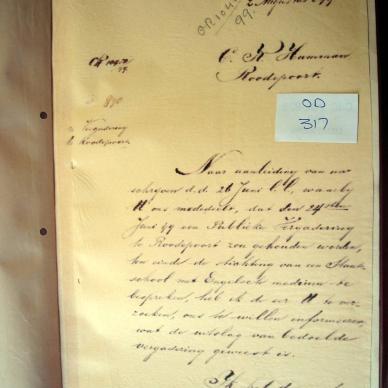 2 Augustus 99
OR 104
99.
OR 10450
99.
C. R. Hamman
Roodepoort.
OD
317
890
Vergadering
te Roodepoort
Naar aanleiding van uw
schrijven d.d. 26 Juni l.l., waarby
U ons mededeelt, dat den 24sten
Juni 99 een Publieke Vergadering
te Roodepoort zou gehouden worden,
ten einde de stichting van een Staats
school met Engelsch medium te
bespreken, heb ik de eer U te ver-
zoeken, ons te willen informeeren
wat de uitslag van bedoelde
vergadering geweest is.